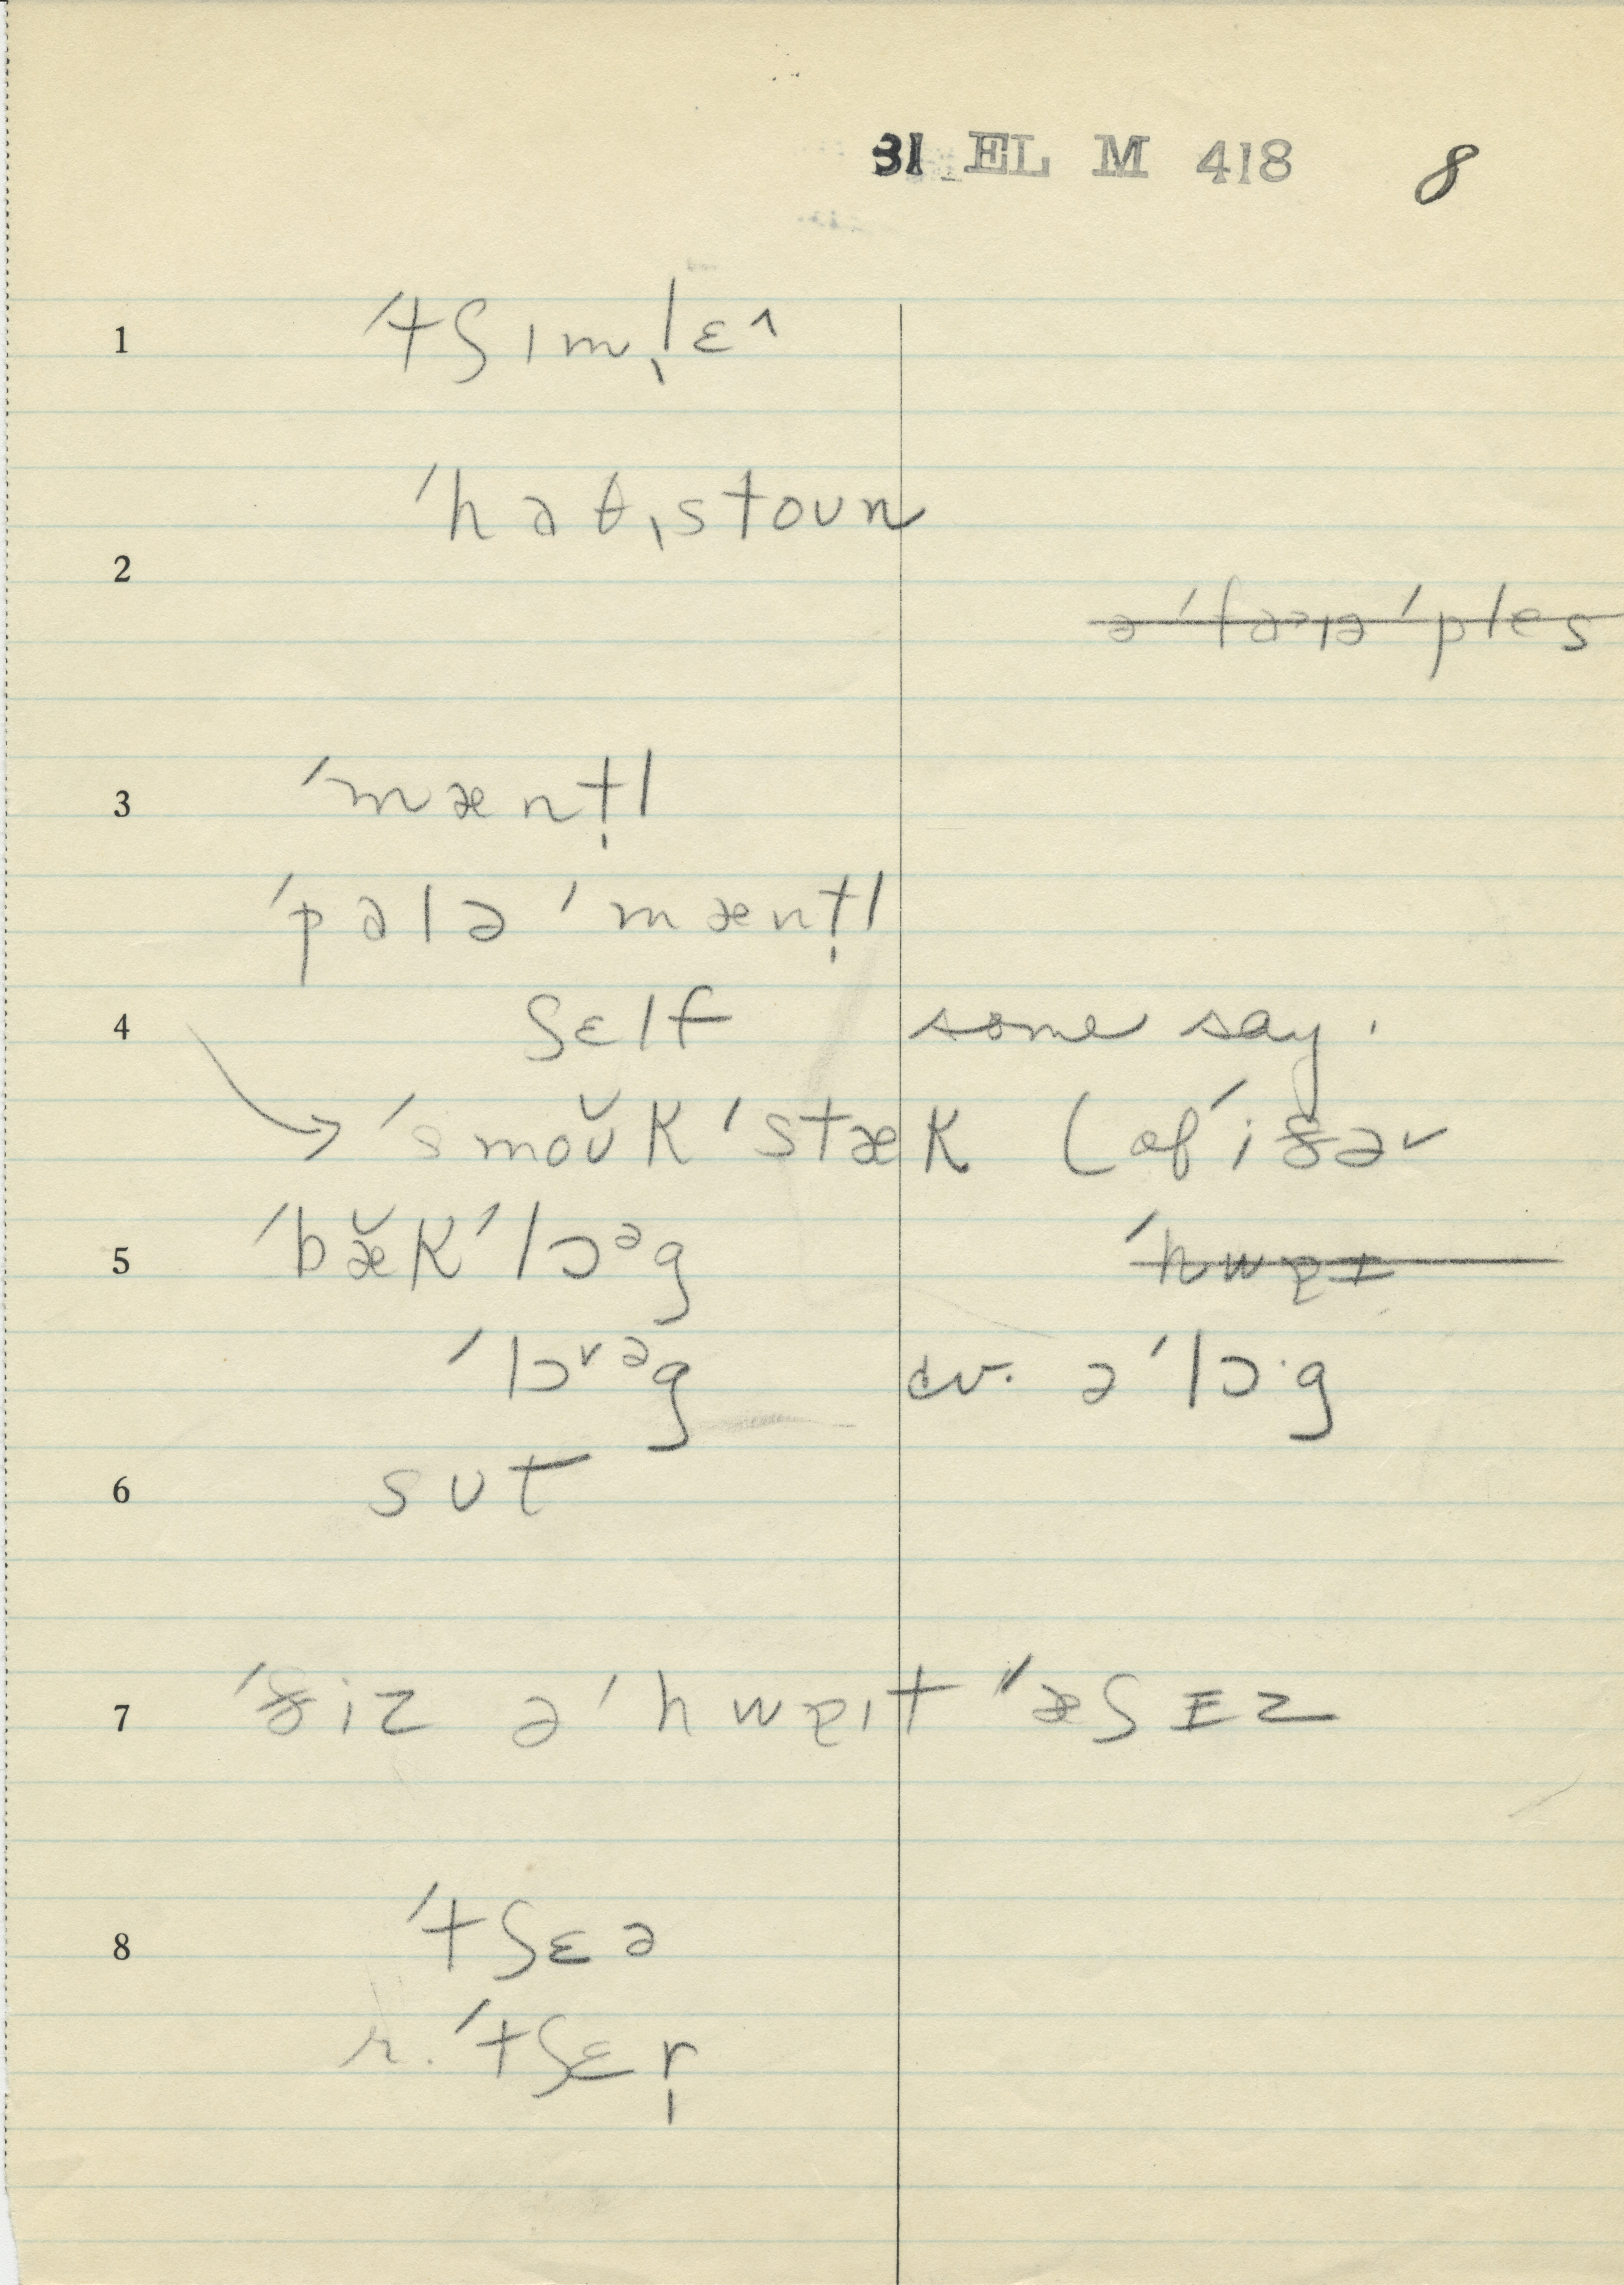 31 EL M 418 8
1 ˈtʃɪmˌlɛ˄
ˈhaθˌstoun
2
ə ˈfaəɪə ˈples
3 ˈmæntl̩
ˈpalə ˈmæntl̩
4 ʃɛlf some say.
→ ˈsmoŭk ˈstæk (of
5 ˈbæ̆k ˈlɔᵊg ˈhwɐɪ
ˈlɔ˅ᵊg cv. əˈlɔ·g
6 sʊt
7 ə ˈhwɐɪt ˈˈæʃɪz
8 ˈtʃɛə
r. ˈtʃɛr̩